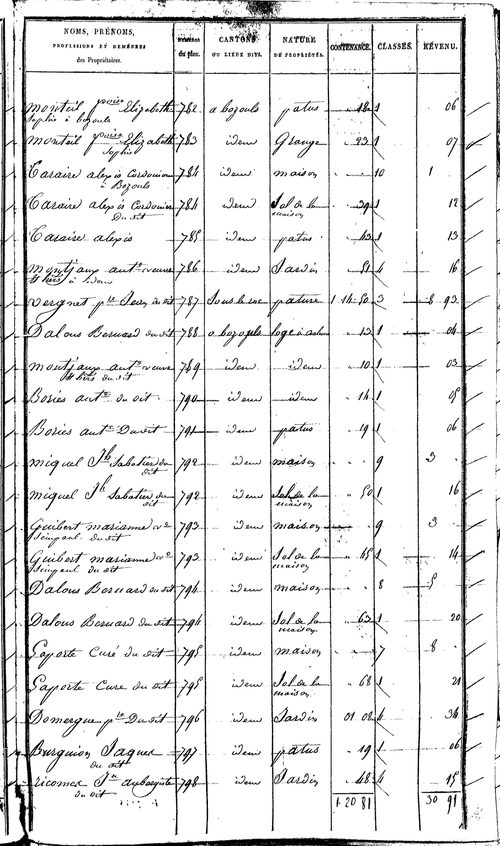 NOMS, PRÉNOMS, PROFESSIONS ET DEMEURES des Propriétaires. NUMÉROS du plan. CANTONS OU LIEUX DITS. NATURE DE PROPRIÉTÉS. CONTENANCE. CLASSES. REVENU.
monteil Elizabeth 782 a bozouls patus 18 1 06
Sophie à bozouls
monteil Elizabeth 783 idem Grange 23 1 07
Sophie
Caraire alexis Cordonier 784 idem maison 10 1
à Bozouls
Caraire alexis Cordonier 784 idem Sol de la maison 39 1 12
Du dit
Caraire alexis 785 idem patus 43 1 13
montjaux ant.e veuve 786 idem Jardin 51 4 16
Vergnet p.re Jean du dit 787 Sous le roc pature 1 14 50 3 8 93
Dalous Bernard du dit 788 a bozouls 13 1 04
montjaux ant.e veuve 789 idem idem 10 1 03
hérs du dit
Bories ant.e du dit 790 idem idem 14 1 05
Bories ant.e Du dit 791 idem patus 19 1 06
miquel J.h Sabatier du dit 792 idem maison 9 3
miquel J.h Sabatier du dit 792 idem Sol de la maison 50 1 16
Guibert marianne v.e 793 idem maison 9 3
du dit
Guibert marianne v.e 793 idem Sol de la maison 45 1 14
du dit
Dalous Bernard du dit 794 idem maison 8 5
Dalous Bernard du dit 794 idem Sol de la maison 63 1 20
Laporte Curé du dit 795 idem maison 7 8
Laporte Cure du dit 795 idem Sol de la maison 68 1 21
Domergue p.re Du dit 796 idem Jardin 01 08 4 34
Burguion Jaques 797 idem patus 19 1 06
du dit
ricomes J.n aubergiste 798 idem Jardin 48 4 15
du dit
1 20 81 30 91